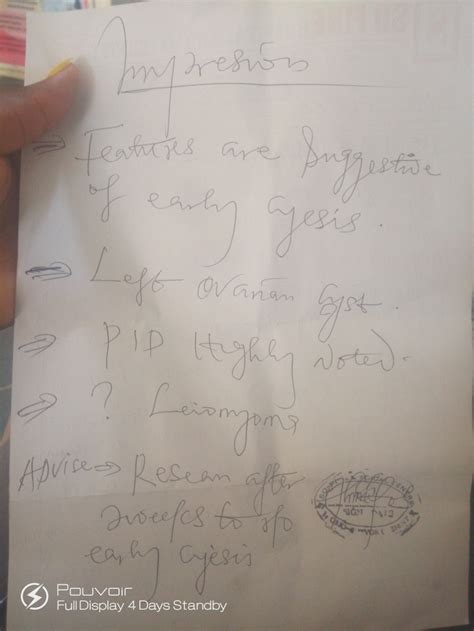 Impresion
⇒ Features are Suggestive
of early cyesis.
⇒ Left ovarian cyst.
⇒ PID Highly Noted.
⇒ ? Leiomyoma
Advise ⇒ Rescan after
2 weeks to r/o
early cyesis
Pouvoir
Full Display 4 Days Standby